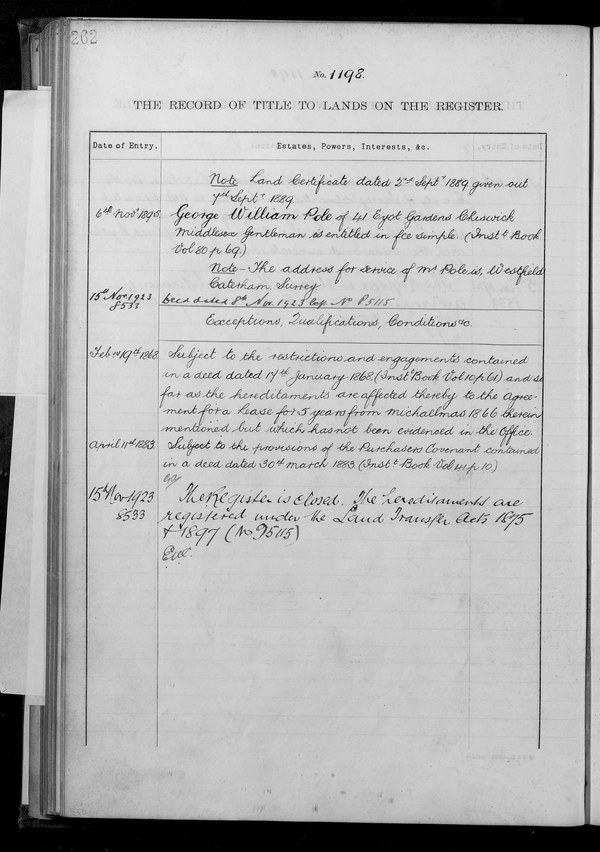 262
No. 1198.
THE RECORD OF TITLE TO LANDS ON THE REGISTER.
Date of Entry.
Estates, Powers, Interests, &c.
Note Land Certificate dated 2nd Septr 1889 given out
7th Septr 1889
6th Novr 1895. George William Pole of 41 Eyot Gardens Chiswick
Middlesex Gentleman is entitled in fee simple. (Inst. Book
Vol 80 p 69.)
Note - The address for service of Mr Pole is, Westfield
Caterham, Surrey
15th Nov 1923 Deed dated 8th Nov. 1923 No P5115
8533
Exceptions, Qualifications, Conditions &c.
Feb ry 19th 1868. Subject to the restrictions and engagements contained
in a deed dated 17th January 1868 (Inst. Book Vol 10 p 61) and so
far as the hereditaments are affected thereby to the agree-
ment for a lease for 5 years from Michalmas 1866 therein
mentioned but which has not been evidenced in the Office.
April 11th 1883. Subject to the provisions of the Purchasers Covenant contained
in a deed dated 30th March 1883 (Inst. Book Vol 41 p 10)
15th Nov 1923 The Register is closed. The hereditaments are
8533 registered under the Land Transfer Acts 1875
& 1897 (No P5115)